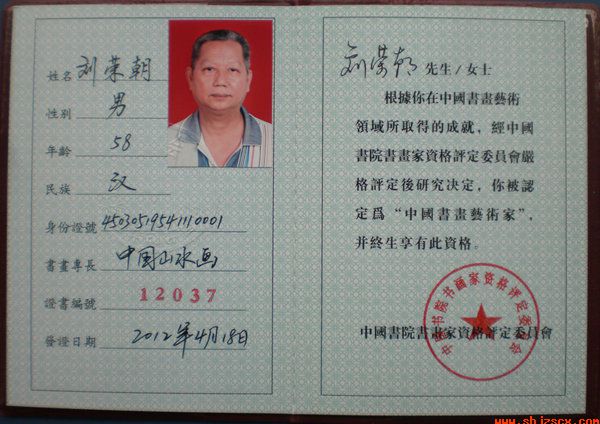 姓名 刘荣朝
性别 男
年龄 58
民族 汉
身份證號 45030519541110001
書畫專長 中国山水画
證書編號 12037
發證日期 2012年4月18日
刘荣朝 先生/女士
根據你在中國書畫藝術
領域所取得的成就，經中國
書院書畫家資格評定委員會嚴
格評定後研究决定，你被認
定爲“中國書畫藝術家”，
并終生享有此資格。
中国书院书画家资格评定委员会
中國書院書畫家資格評定委員會